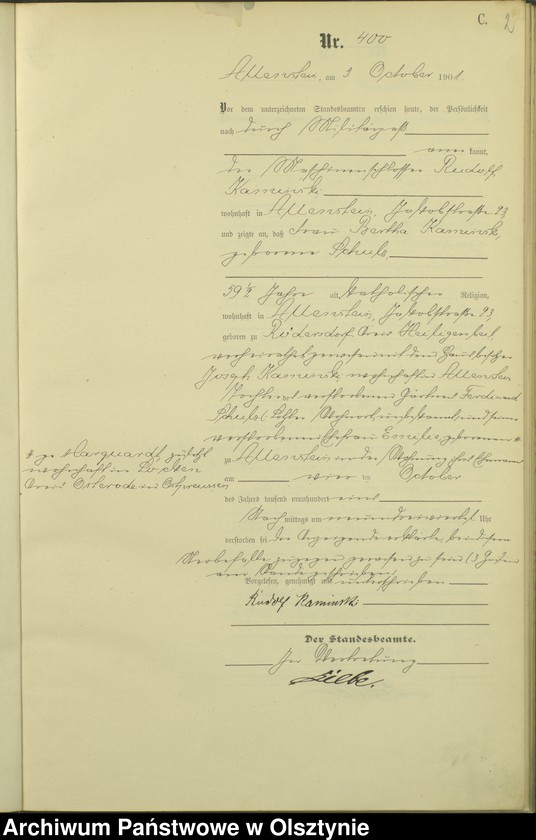 C. 2
Nr. 400
Allenstein, am 3 October 1901
Vor dem unterzeichneten Standesbeamten erschien heute, der Persönlichkeit
nach durch Militärpaß
kannt,
der Maschinenschlosser Rudolf
Kaminski
wohnhaft in Allenstein, Jakobstraße 23,
und zeigte an, daß Frau Bertha Kaminski,
geborene Schulz
59 1/2 Jahre alt, katholischer Religion,
wohnhaft in Allenstein, Jakobstraße 23,
geboren zu Rödersdorf Kreis Heiligenbeil,
verheirathet gewesen mit dem Hausbesitzer
Joseph Kaminski wohnhaft in Allenstein
Tochter des verstorbenen Ferdinand
Schulz
verstorbenen Ehefrau Emilie geborenen #
# ge Marquardt, zuletzt
wohnhaft in
Kreis Osterode in Ostpreussen
zu Allenstein in der Wohnung ihres Ehemannes
am October
des Jahres tausend neunhundert eins
Nachmittags um neun dreiviertel Uhr
verstorben sei der Anzeigende erklärte, bei dem
Sterbefalle zugegen gewesen zu sein
am Rande geschrieben
Vorgelesen, genehmigt und unterschrieben
Rudolf Kaminski
Der Standesbeamte.
In Vertretung
Archiwum Państwowe w Olsztynie